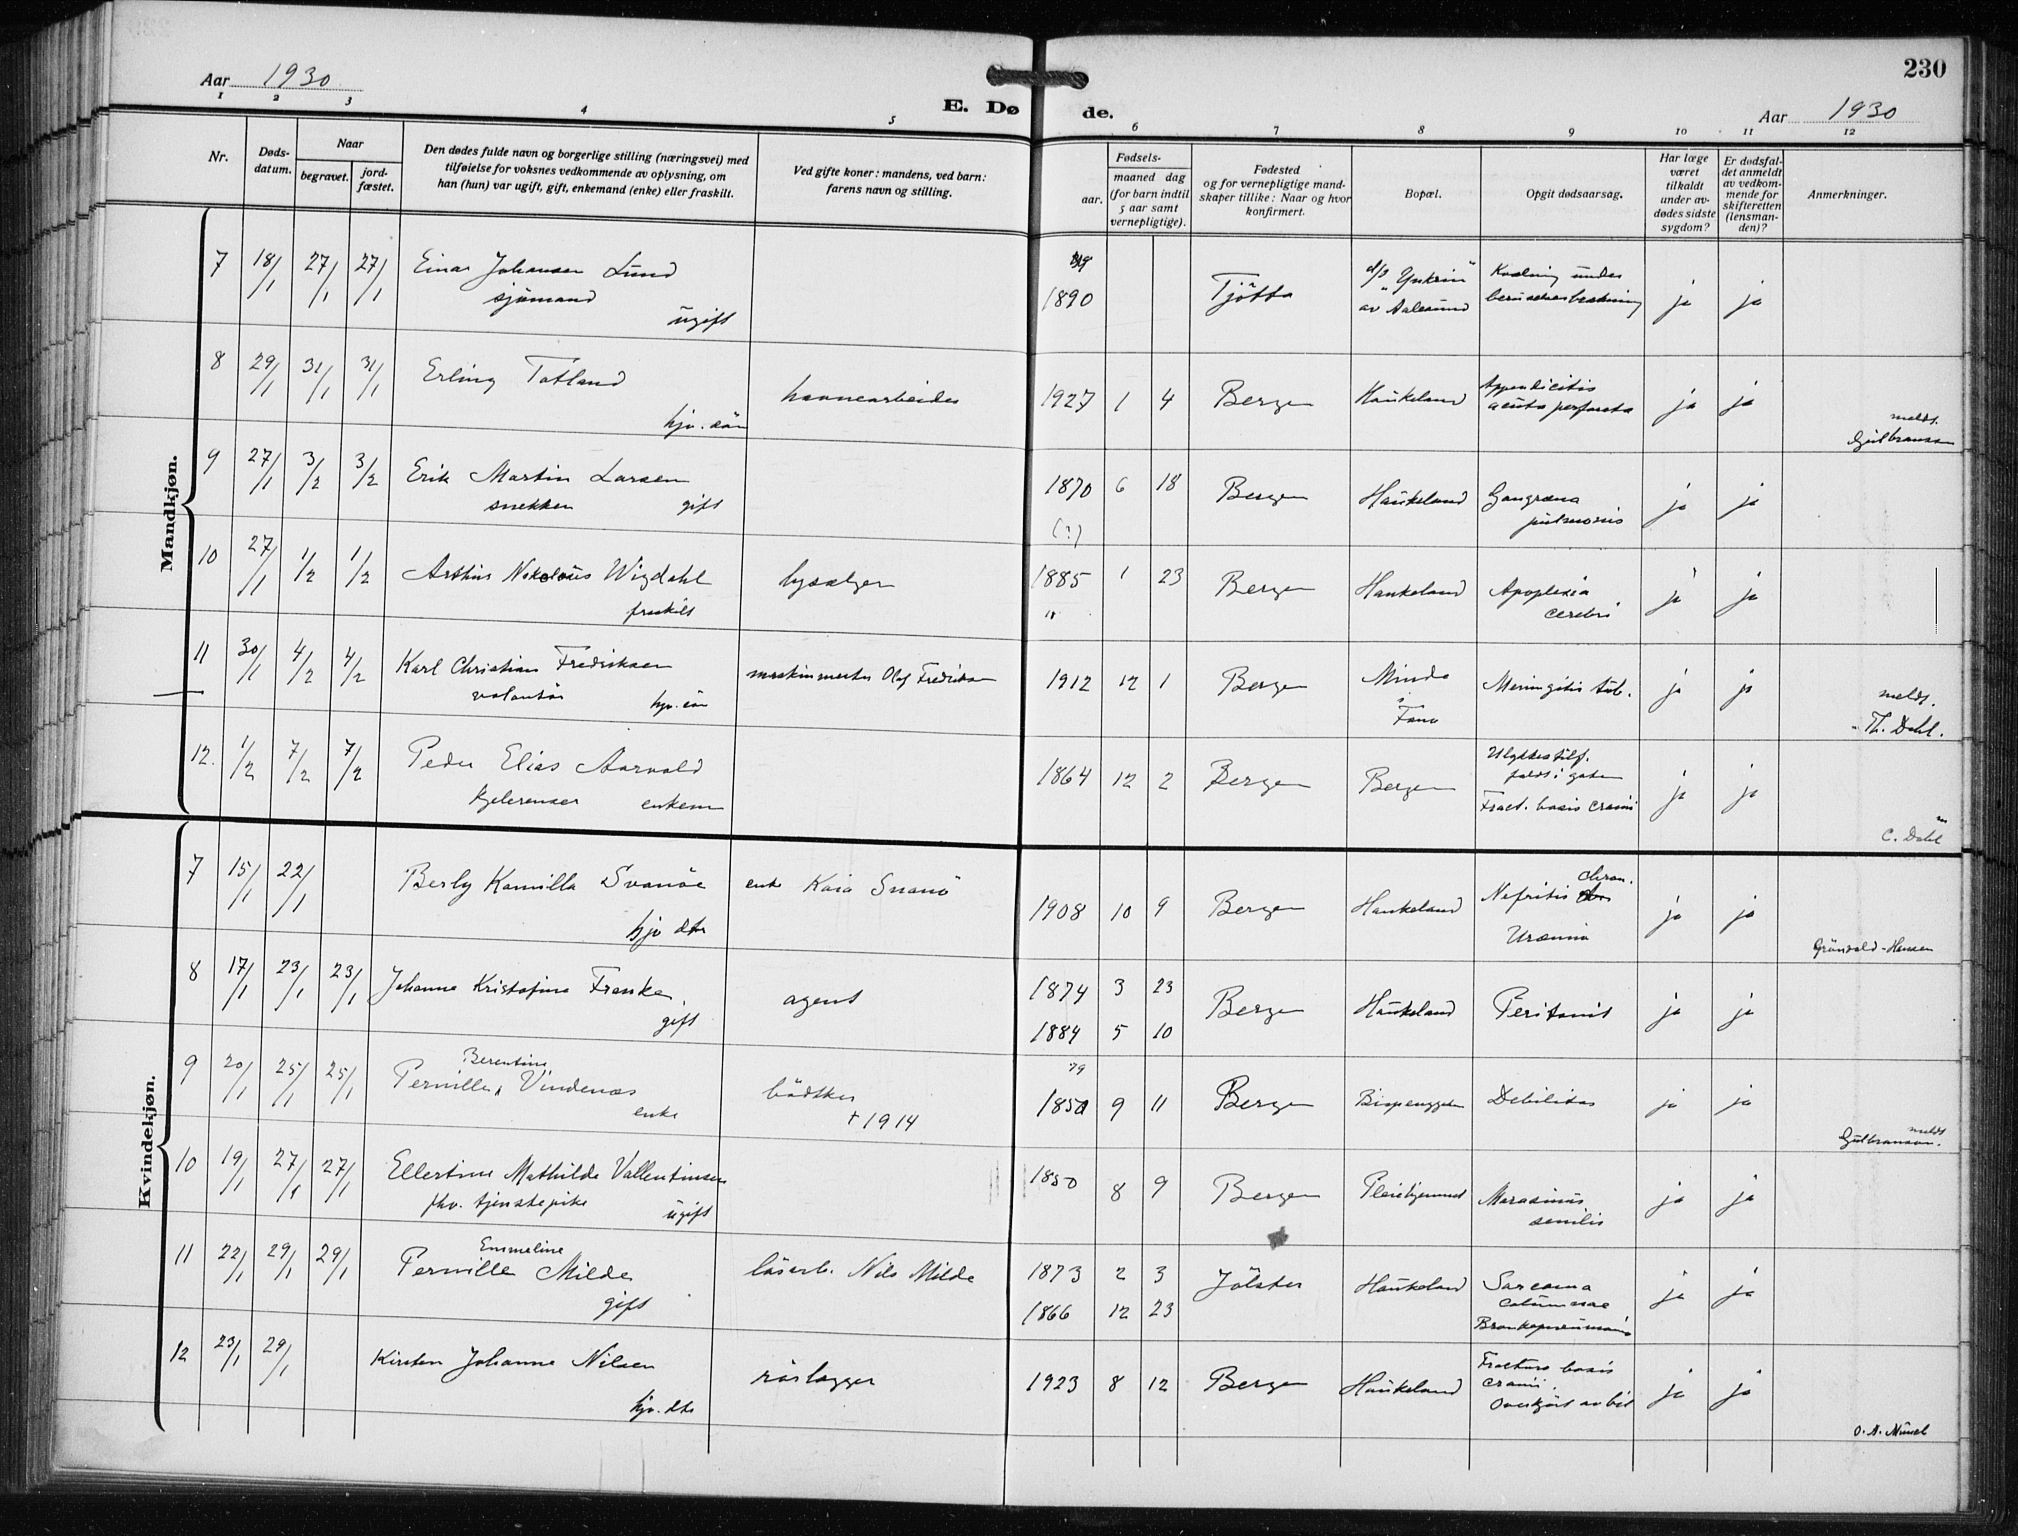 Aar 1930
E. Døde.
230
Aar 1930
1 2 3 4 5 6 7 8 9 10 11 12
Nr.
Døds-datum.
Naar
begravet.
jord-fæstet.
Den dødes fulde navn og borgerlige stilling (næringsvei) med
tilføielse for voksnes vedkommende av oplysning, om
han (hun) var ugift, gift, enkemand (enke) eller fraskilt.
Ved gifte koner: mandens, ved barn:
farens navn og stilling.
Fødsels-
aar.
maaned dag
(for barn indtil
5 aar samt
vernepligtige).
Fødested
og for vernepligtige mand-
skaper tillike: Naar og hvor
konfirmert.
Bopæl.
Opgit dødsaarsag.
Har læge
været
tilkaldt
under av-
dødes sidste
sygdom?
Er dødsfal-
det anmeldt
av vedkom-
mende for
skifteretten
(lensman-
den)?
Anmerkninger.
Mandkjøn.
7 18/1 27/1 27/1 Einar Johansen Lund 1890 Tjötta d/s
sjömand av Aalesund Kvælning under ja ja
ugift
8 29/1 31/1 31/1 Erling Totland havnearbeider 1927 1 4 Bergen Haukeland Appendicitis
acuta perforata ja ja
hjv. sön meldt.
Gulbransen
9 27/1 3/2 3/2 Erik Martin Larsen 1870 6 18 Bergen Haukeland Gangræna
snekker gift (?) pulmonis ja ja
10 27/1 1/2 1/2 Arthur Nikolaus Wigdahl lysselger 1885 1 23 Bergen Haukeland Apoplexia
fraskilt cerebri ja ja
11 30/1 4/2 4/2 Karl Christian Fredriksen maskinmester Olaf Fredriksen 1912 12 1 Bergen Minde
i
Fana Meningitis tub. ja ja
volontör hjv. sön meldt.
Th. Dahl.
12. 1/2 7/2 7/2 Peder Elias Aarvold 1864 12 2 Bergen Bergen Ulykkestilf.
faldt i gaten
Fract. basis cranii ja ja
enkem C. Dahl
Kvindekjøn.
7 15/1 22/1 Berly Kamilla Svanöe enke Kaia Svanö 1908 10 9 Bergen Haukeland Nefritis chron.
Uræmia ja ja
hjv dtr Gröndahl-Hansen
8 17/1 23/1 23/1 Johanne Kristofine Franke agent 1874 3 23 Bergen Haukeland Peritonit ja ja
gift 1884 5 10
9 20/1 25/1 25/1 Pernille Berentine Vindenæs bödtker 79
1850 9 11 Bergen Bispenggaten Debilitas ja ja
enke + 1914 meldt
Gulbransen.
10 19/1 27/1 27/1 Ellertine Mathilde Vallentinsen 1850 8 9 Bergen Pleiehjemmet Marasmus
senilis ja ja
fhv. tjenstepike ugift
11 22/1 29/1 29/1 Pernille Emmeline Milde lösarb. Nils Milde 1873 2 3 Jölster Haukeland Sarcoma
columnae
Bronkopneumonia ja ja
gift 1866 12 23
12 23/1 29/1 Kirsten Johanne Nilsen rörlegger 1923 8 12 Bergen Haukeland Fractura basis
cranii.
Overkjört av bil ja ja
hjv. dtr O. A. Munch